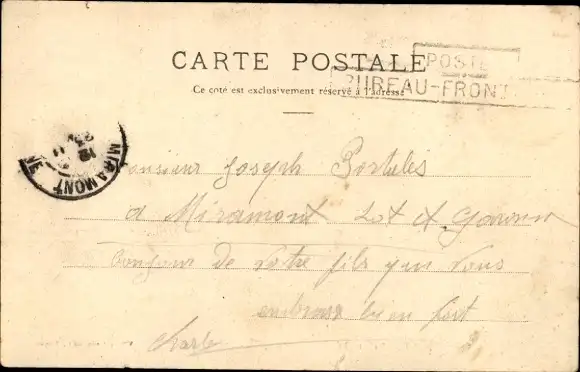 CARTE POSTALE
POSTE
BUREAU-FRONT
Ce coté est exclusivement réservé à l'adresse
MIRAMONT
Monsieur Joseph Portalis
a Miramont Lot et Garonne
Bonjour de votre fils qui vous
embrasse bien fort
Charle